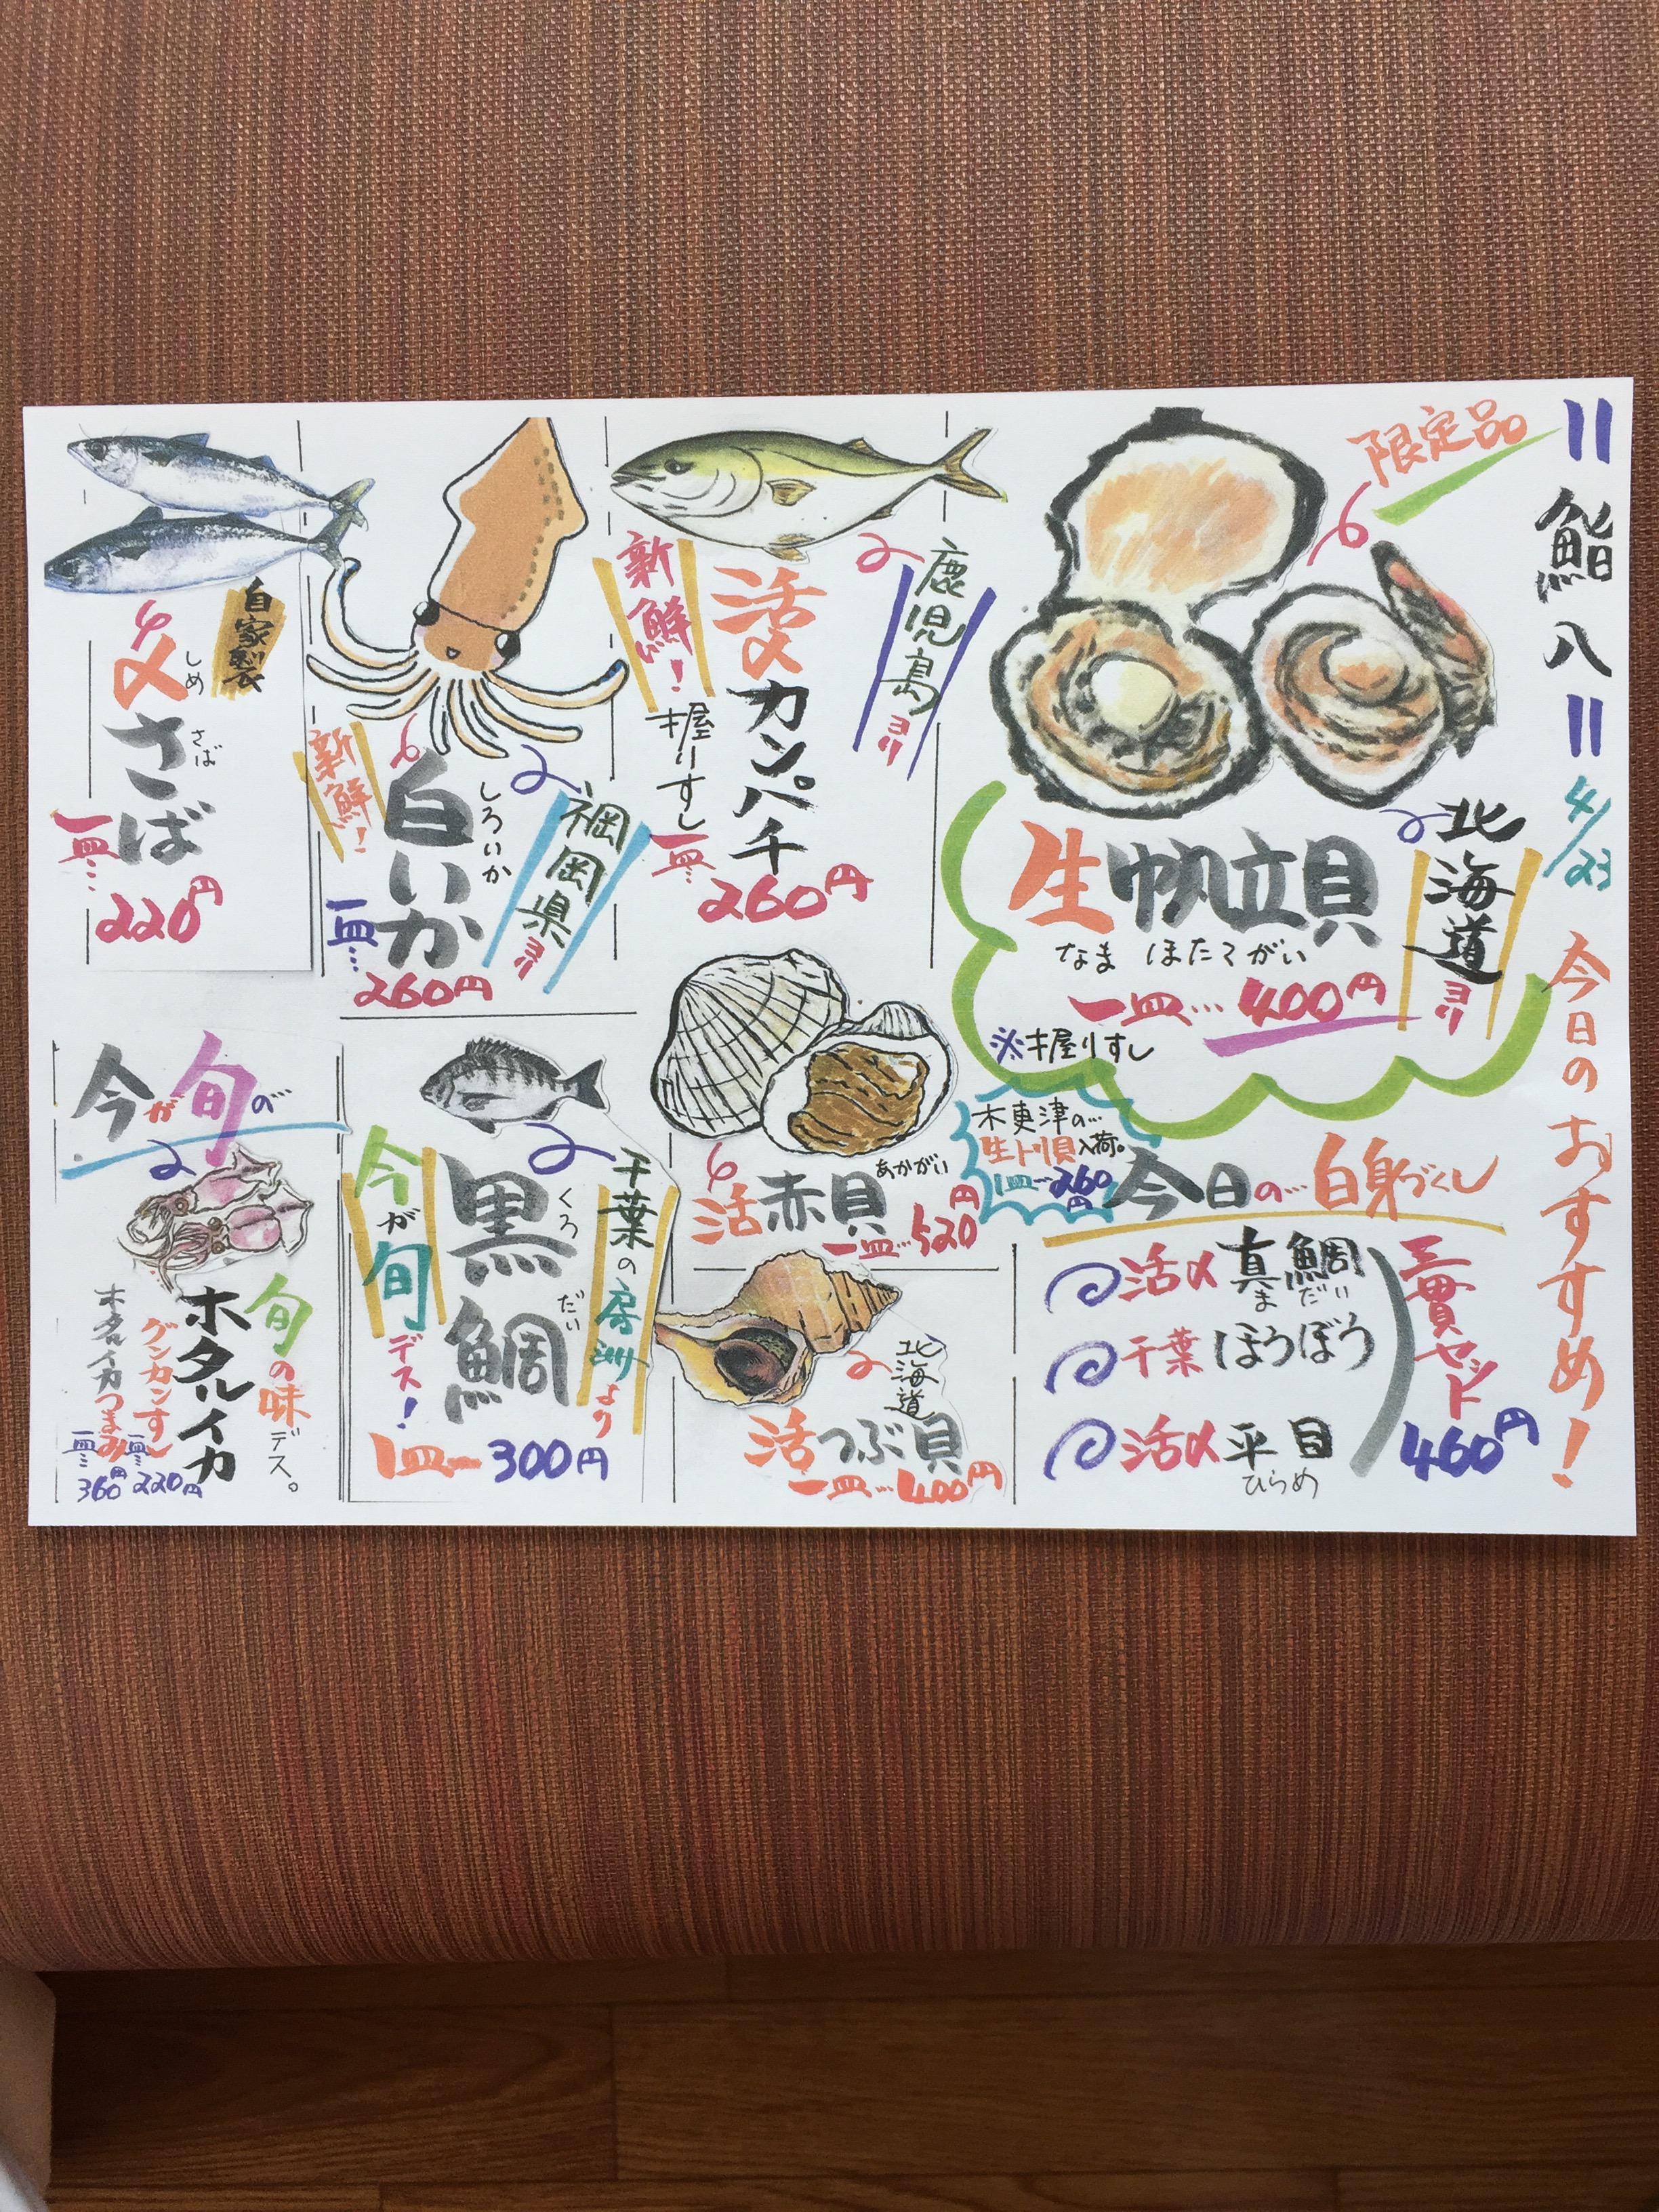 〃鮨八〃 4/23 今日のおすすめ!
限定品
北海道ヨリ
生帆立貝
なま ほたてがい
一皿…400円
※握りすし
鹿児島ヨリ
活〆カンパチ
新鮮!
握りすし
一皿…
260円
福岡県ヨリ
しろいか
白いか
新鮮!
一皿…
260円
自家製
しめ さば
〆さば
一皿…
220円
今日の…白身づくし
活〆真鯛
まだい
千葉ほうぼう
活〆平目
ひらめ
三貫セット
460円
木更津の…
生トリ貝入荷。
1皿…260円
あかがい
活赤貝
一皿…520円
北海道
活つぶ貝
一皿…400円
千葉の房州より
くろだい
黒鯛
今が旬デス!
1皿…300円
今が旬の
旬の味デス。
ホタルイカ
グンカンすし
一皿…220円
ホタルイカつまみ
一皿…360円